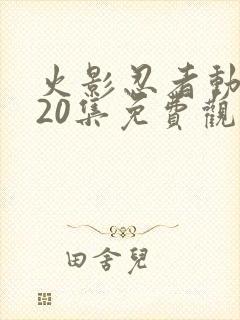 火影忍者動
20集免費觀
田舍兒